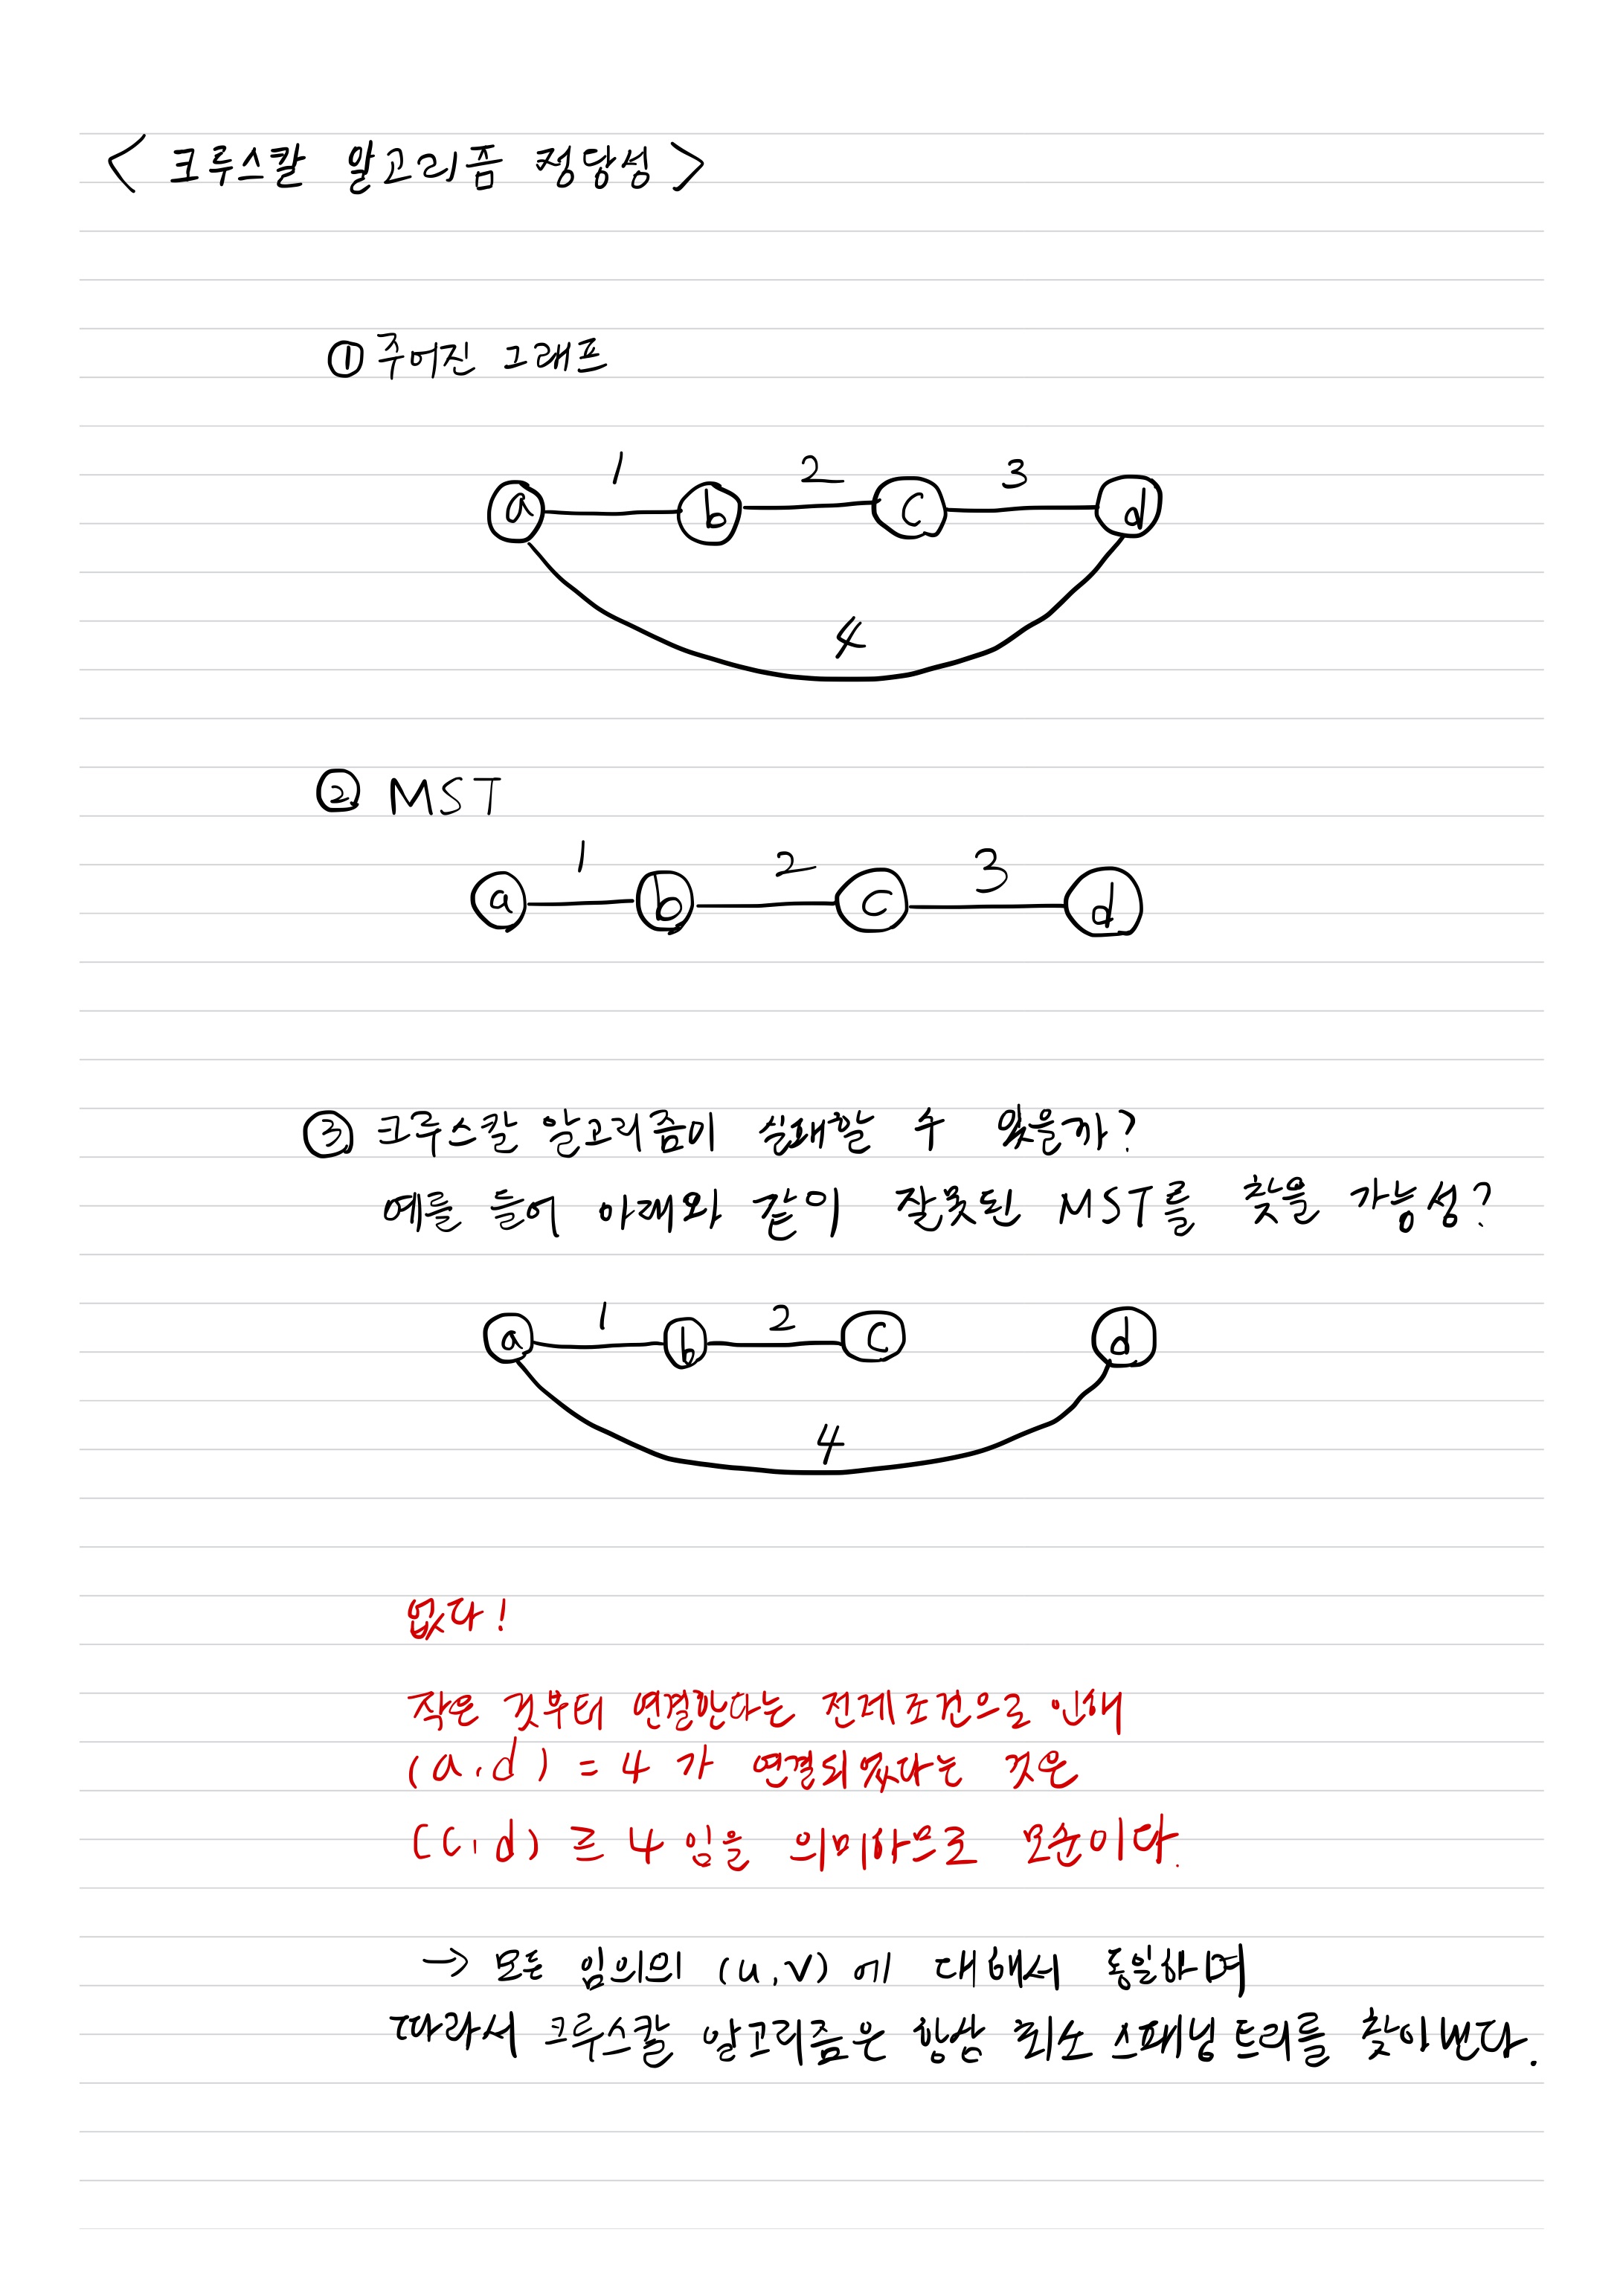 < 크루스칼 알고리즘 정당성 >
① 주어진 그래프
1 2 3
a b c d
4
② MST
1 2 3
a b c d
③ 크루스칼 알고리즘이 실패할 수 있을까?
예를 들어 아래와 같이 잘못된 MST를 찾을 가능성?
1 2
a b c d
4
없다!
작은 것부터 연결한다는 전제조건으로 인해
(a,d) = 4 가 연결되었다는 것은
(c,d) 르 4 임을 의미하므로 모순이다.
→ 모든 임의의 (u,v) 에 대해서 동일하며
따라서 크루스칼 알고리즘은 항상 최소 스패닝 트리를 찾아낸다.